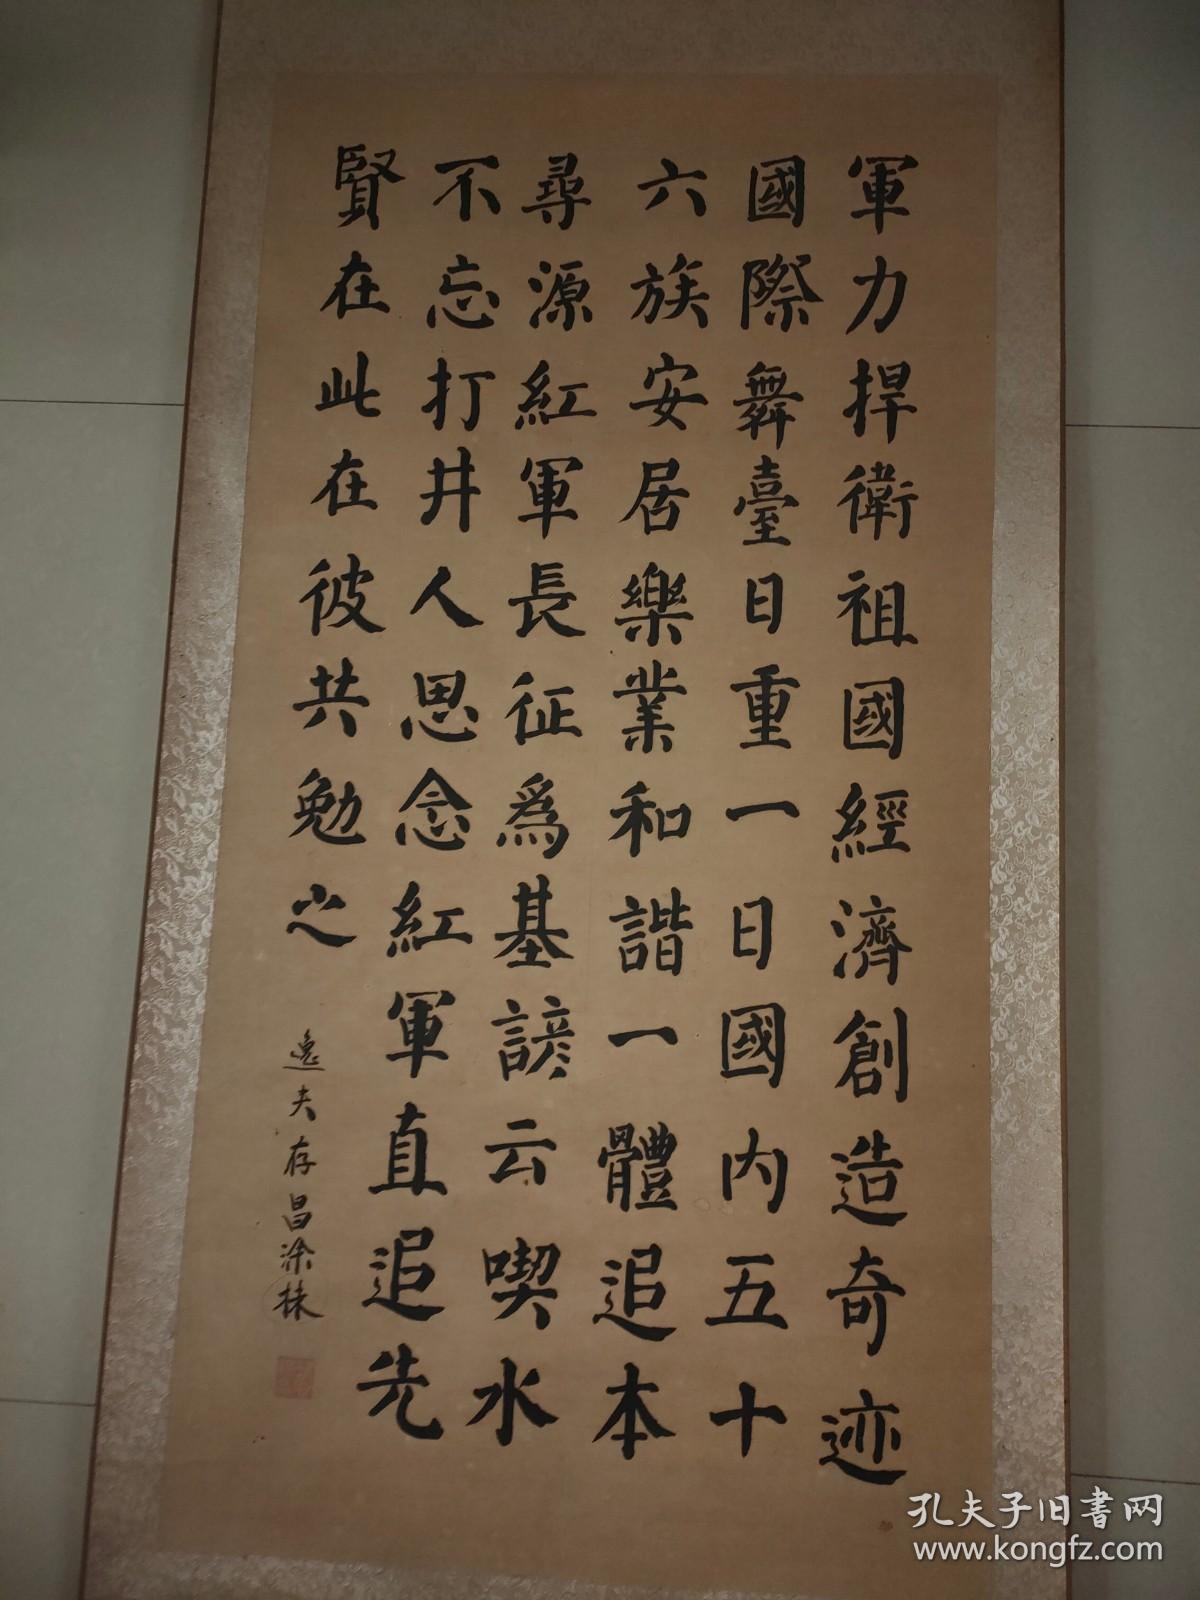 軍力捍衛祖國經濟創造奇迹
國際舞臺日重一日國內五十
六族安居樂業和諧一體追本
尋源紅軍長征爲基諺云喫水
不忘打井人思念紅軍直追先
賢在此在彼共勉之
逸夫存昌涂抹
孔夫子旧書网
www.kongfz.com